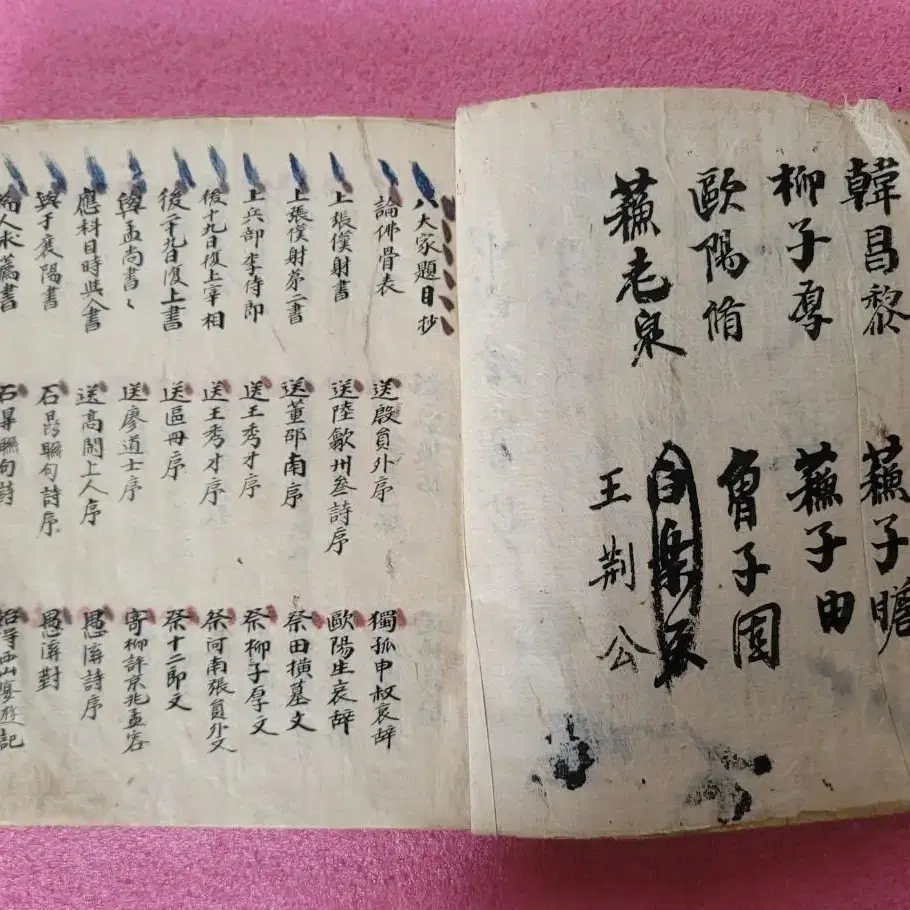 韓昌黎
柳子厚
歐陽脩
蘓老泉
蘓子瞻
蘓子由
曾子固
白樂天
王荆公
八大家題目抄
論佛骨表
上張僕射書
上張僕射第二書
上兵部李侍郎
後十九日復上宰相
後廿九日復上書
與孟尚書〻
應科目時與人書
與于襄陽書
爲人求薦書
送殷員外序
送陸歙州叅詩序
送董邵南序
送王秀才序
送王秀才序
送區冊序
送廖道士序
送高閑上人序
石鼎聯句詩序
石鼎聯句詩
獨孤申叔哀辞
歐陽生哀辞
祭田横墓文
祭柳子厚文
祭河南張員外文
祭十二郎文
寄柳許京兆孟容
愚溪詩序
愚溪對
始得西山宴遊記